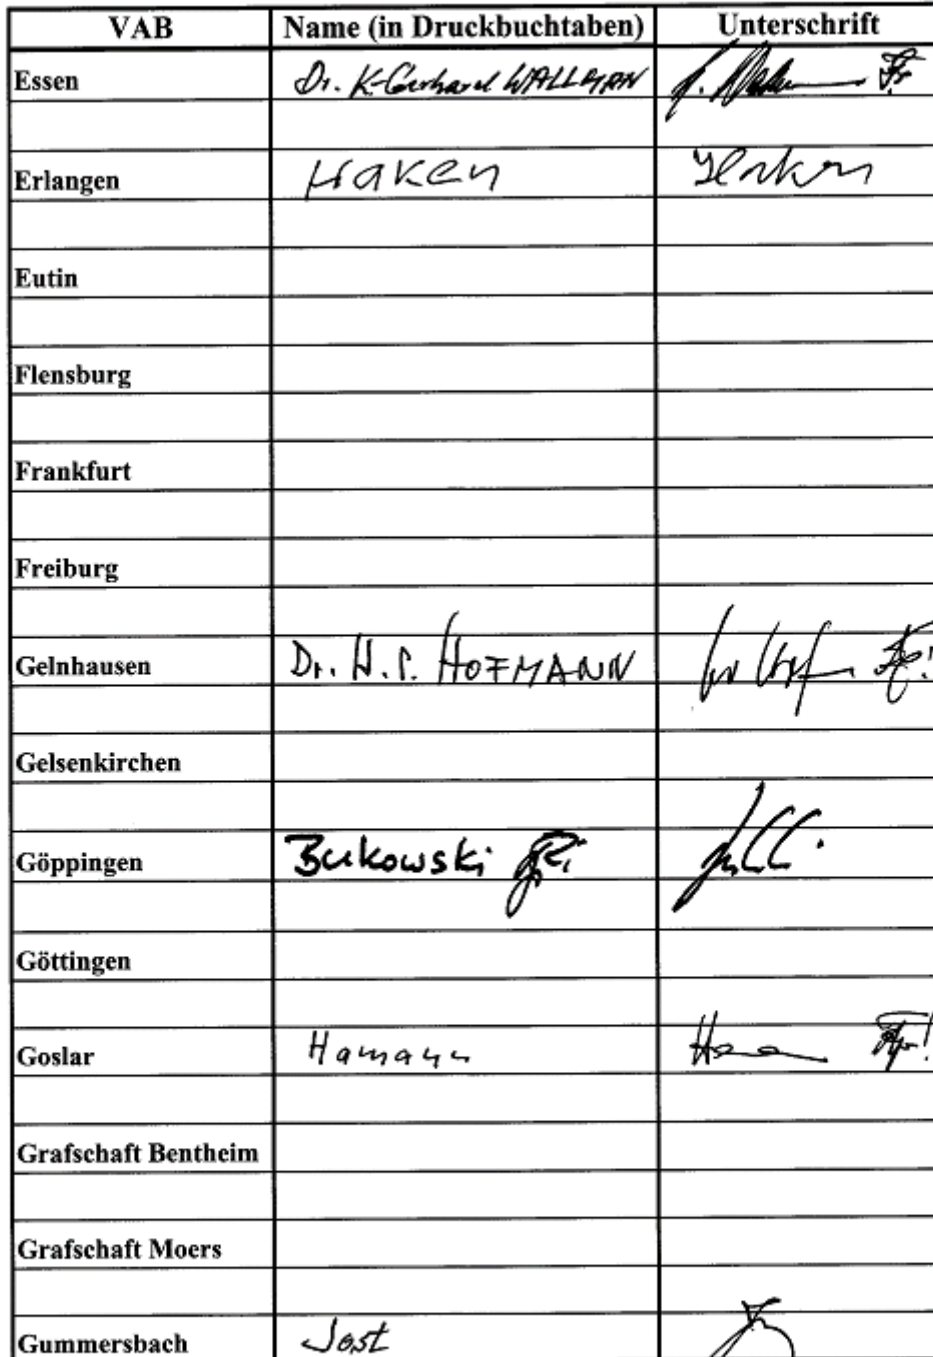 VAB Name (in Druckbuchtaben) Unterschrift
Essen Dr. K-Gerhard WALLMANN
Erlangen Haken Haken
Eutin
Flensburg
Frankfurt
Freiburg
Gelnhausen Dr. H. P. HOFMANN
Gelsenkirchen
Göppingen Bukowski
Göttingen
Goslar Hamann
Grafschaft Bentheim
Grafschaft Moers
Gummersbach Jost